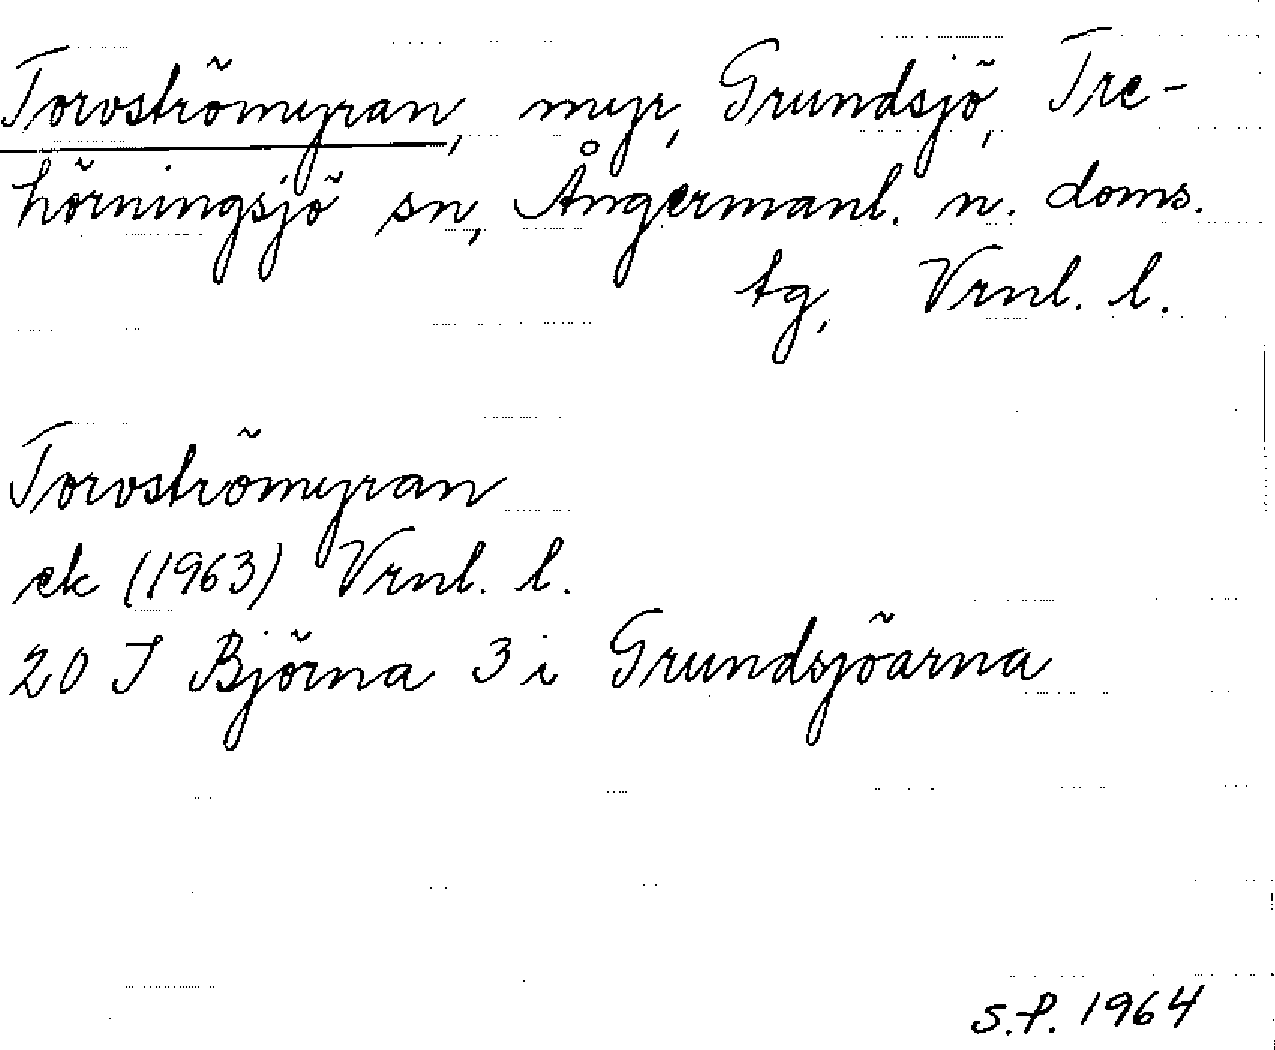 Torvströmyran, myr, Grundsjö, Tre-
hörningsjö sn, Ångermanl. n. doms.
tg, Vrnl. l.
Torvströmyran
ek (1963) Vrnl. l.
20 J Björna 3 i Grundsjöarna
S.P. 1964